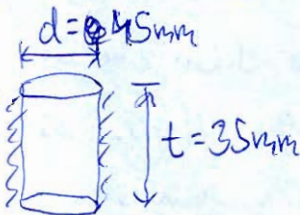 d=45mm
t=35mm